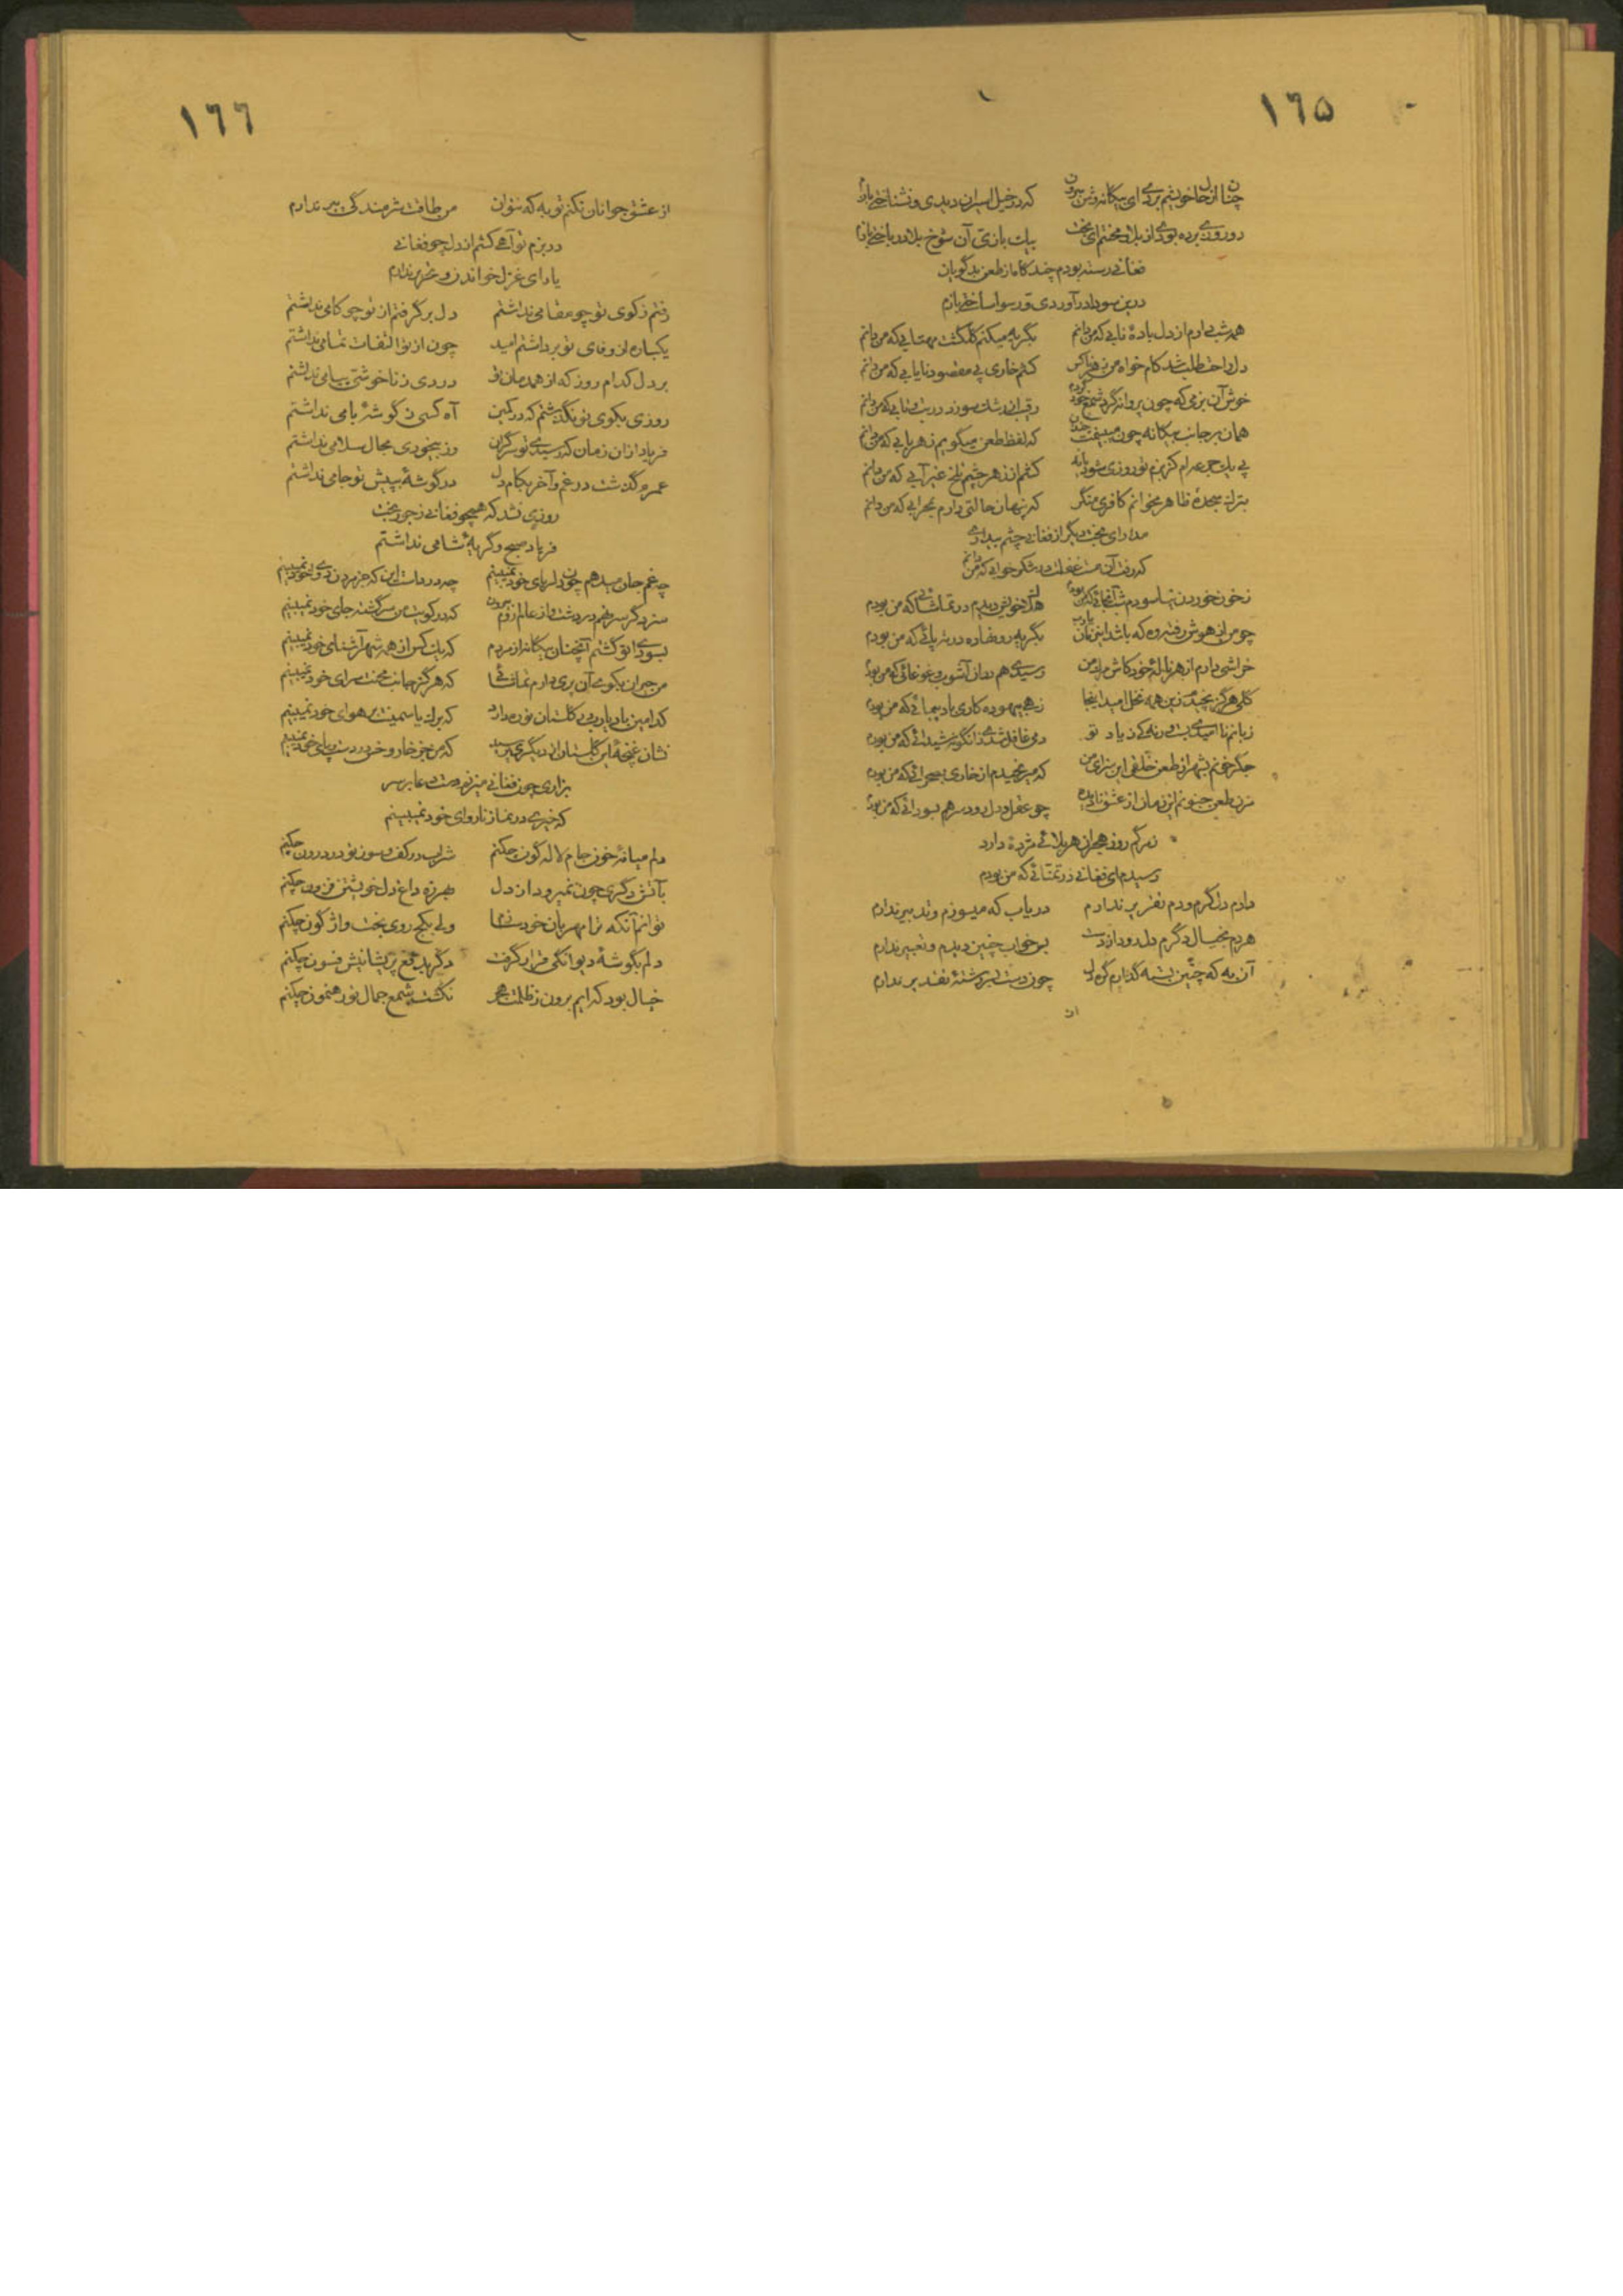 ١٦٥
که در خیل اسیران دیدی و نشناختی بازم
دو روزی برده بودی از بلا و محنتم ای بخت بیک بازی آن شوخ بلا در باختی بازم
فغانی رسته بودم چند گاه از طعن بدگویان
درین سودا در آوردی و رسوا ساختی بازم
همه شب دارم از دل باده نابی که من دانم بگریه میکنم گلگشت مهتابی که من دانم
کشم خاری پی مقصود نایابی که من دانم
خوش آن بزمی که چون پروانه گرد شمع خود گردم رقیب از رشک سوزد در تب و تابی که من دانم
همان بر جانب بیگانه چون که لفظ طعن میگویم ز هر بابی که من دانم
پی یک جرعه می کشم از زهر چشم تلخ که من دانم
بترک سجده ظاهر نخوانم کافری منگر که پنهان حالتی دارم بمحرابی که من دانم
مدار ای بخت دیگر از فغانی چشم بیداری
که رفت آن مست غفلت در شکر خوابی که من دانم
ز خون خوردن نیاسودم شب آنجائی که من بودم هلاک خویش دیدم در تماشائی که من بودم
چو من از هوش رفتم وه که باشد این زمان یا رب بگریه رو نهاده در ته پائی که من بودم
خراشی دارم از هر ناله خود کاش یار من رسیدی هم در آن آشوب و غوغائی که من بودم
گلی هرگز نچیدم زین همه نخل امید اینجا زهی بیهوده کاری باد پیمائی که من بودم
دمی غافل شدی زانگونه شیدائی که من بودم
جگر خونم بشهر از طعن خلق این سزای من که میرنجیدم از خاری بصحرائی که من بودم
مزن طعن جنونم این زمان از عشق نادیده چو عقل و دل رود سر هم بسودائی که من بودم
ز مرگم روز هجران هر بلائی مژده دارد
رسیدم ای فغانی در تمنائی که من بودم
دارم دل گرم و دم تقریر ندارم دریاب که میسوزم و تدبیر ندارم
هر دم بخیال دگرم دل رود از دست بس خواب چنین دیدم و تعبیر ندارم
آن به که چنین بسته گذارم گره دل چون دست بسررشته تقدیر ندارم
از
١٦٦
از عشق جوانان نکنم توبه که نتوان من طاقت شرمندگی پیر ندارم
در بزم تو آهی کشم از دل چو فغانی
یارای غزل خواندن و تقریر ندارم
رفتم ز کوی تو چو مقامی نداشتم دل برگرفتم از تو چو کامی نداشتم
یکباره از وفای تو برداشتم امید چون از تو التفات تمامی نداشتم
بر دل کدام روز که از همدمان تو دردی ز ناخوشی پیامی نداشتم
روزی بکوی تو نگذشتم که در کمین آه کسی ز گوشه بامی نداشتم
فریاد از آن زمان که رسیدی تو سرگران وز بیخودی مجال سلامی نداشتم
عمرم گذشت در غم و آخر بکام دل در گوشه به پیش تو جامی نداشتم
روزی نشد که همچو فغانی ز جور بخت
فریاد صبح و گریه شامی نداشتم
چه غم جان میدهم چون دلربای خود نمیبینم چه دردست این که جز مردن دوای خود نمیبینم
که در کویت من سرگشته جای خود نمیبینم
بسودای تو گشتم آنچنان بیگانه از مردم که یک کس از همه شهر آشنای خود نمیبینم
من حیران بکوی آن پری دارم تماشائی که هرگز جانب محنت سرای خود نمیبینم
کدامین باد یا رب بر گلستان تو ره دارد که برگ یاسمینت بر هوای خود نمیبینم
نشان غنچه این گلستان از دیگری پرسید که من جز خار و خس در دست و پای خود نمیبینم
بزاری چون فغانی میزنم دست دعا بر سر
که خیری در نماز ناروای خود نمیبینم
دلم میانه خون جام لاله گون چکنم شراب در کف و سوز تو در درون چکنم
بآتش دگری چون نمیرود از دل بهرزه داغ دل خویشتن فزون چکنم
توانم آنکه ترا مهربان خود سازم ولی بکجروی بخت واژگون چکنم
دلم بگوشه دیوانگی قرار گرفت دگر بدفع پریشانیش فسون چکنم
خیال بود که آیم برون ز ظلمت هجر نگشت شمع جمال تو رهنمون چکنم